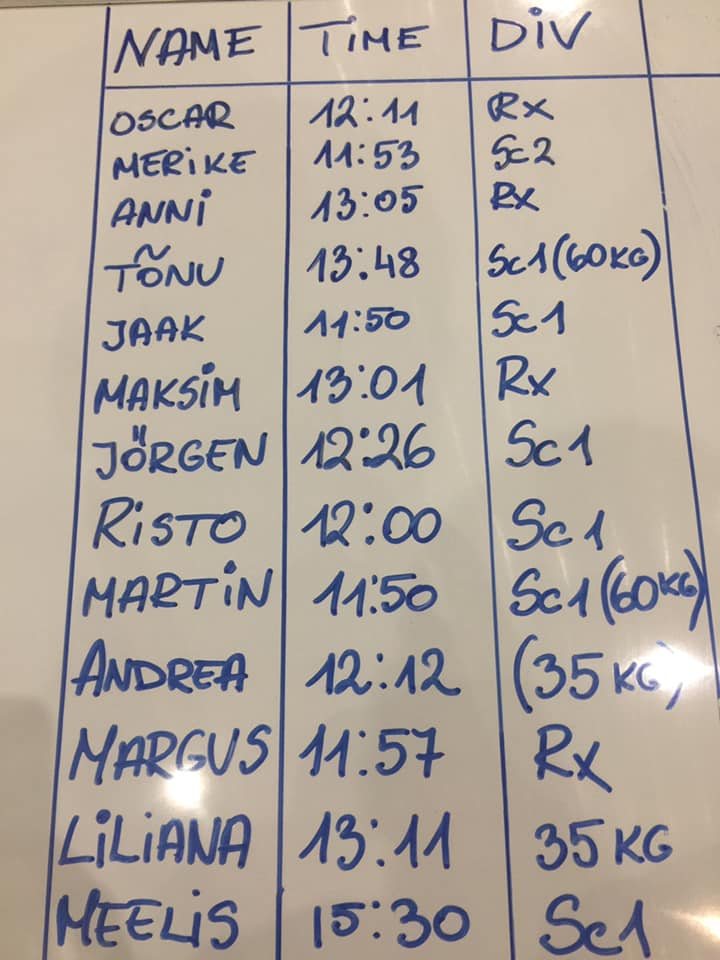 NAME TiME DiV
OSCAR 12:11 Rx
MERiKE 11:53 Sc2
ANNi 13:05 Rx
TÕNU 13:48 Sc1 (60KG)
JAAK 11:50 Sc1
MAKSiM 13:01 Rx
JÖRGEN 12:26 Sc1
RiSTO 12:00 Sc1
MARTiN 11:50 Sc1 (60KG)
ANDREA 12:12 (35 KG)
MARGUS 11:57 Rx
LiLiANA 13:11 35 KG
MEELiS 15:30 Sc1